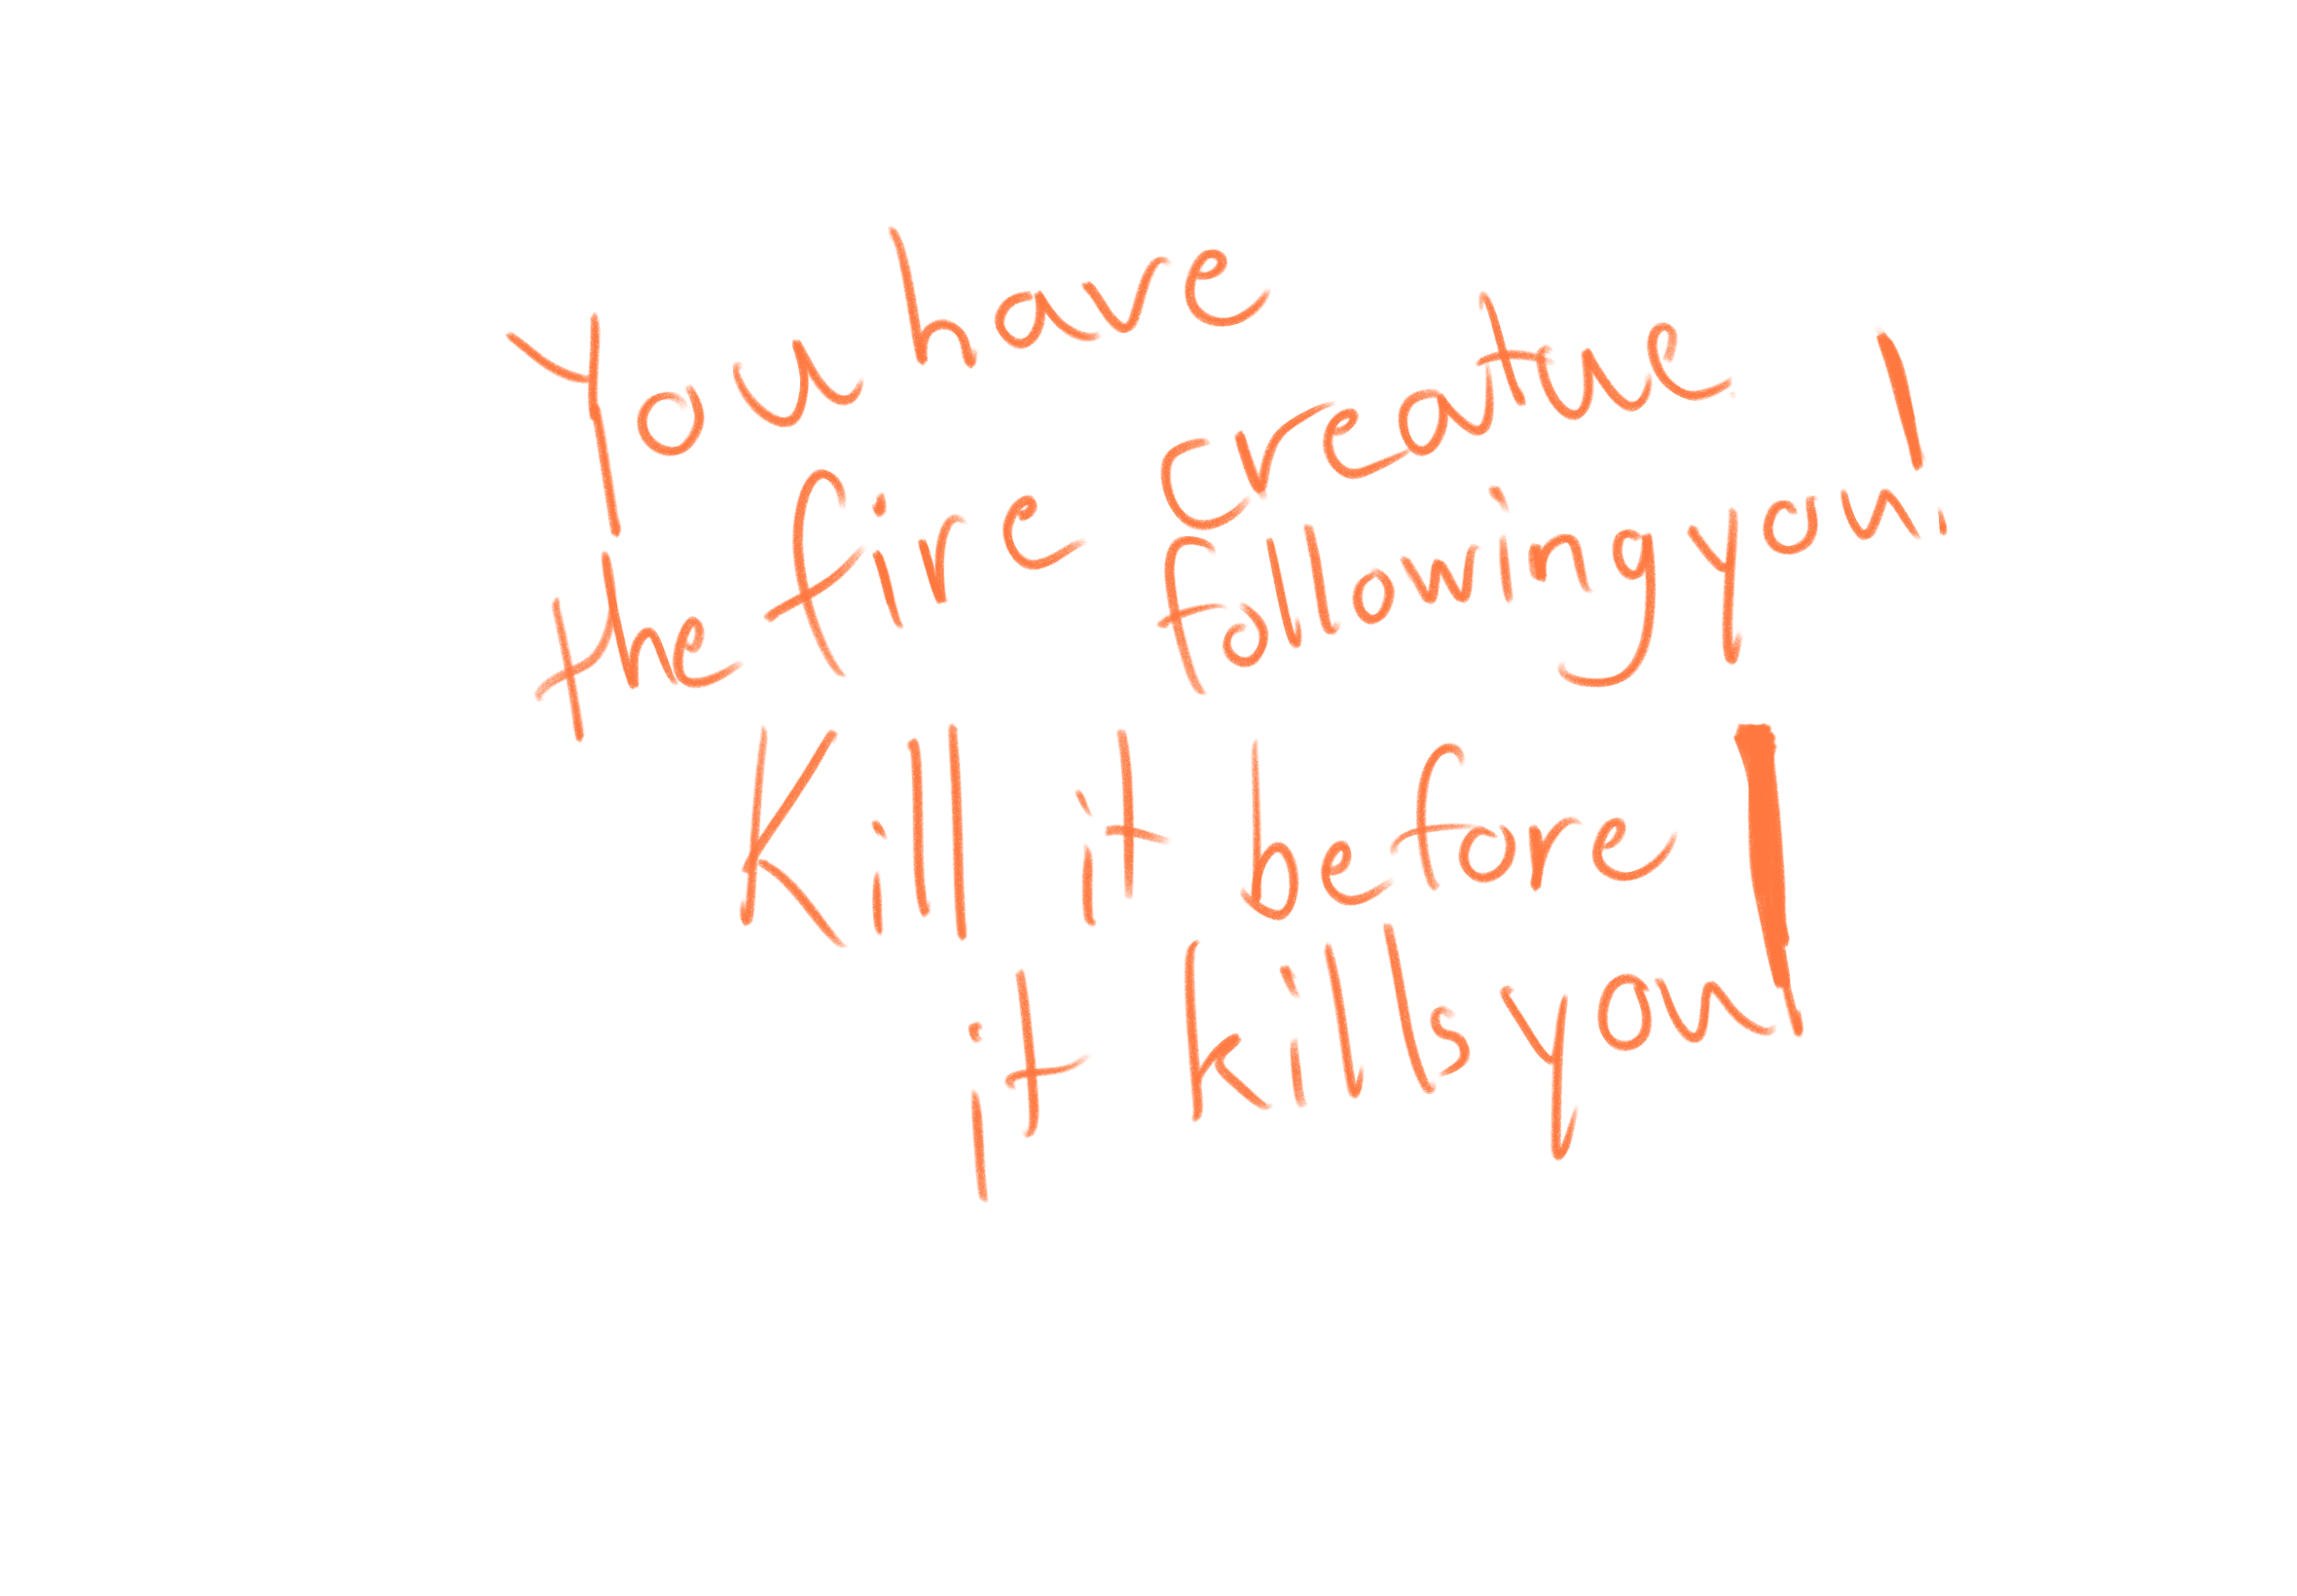 You have
the fire creatue
following you!
Kill it before
it kills you!